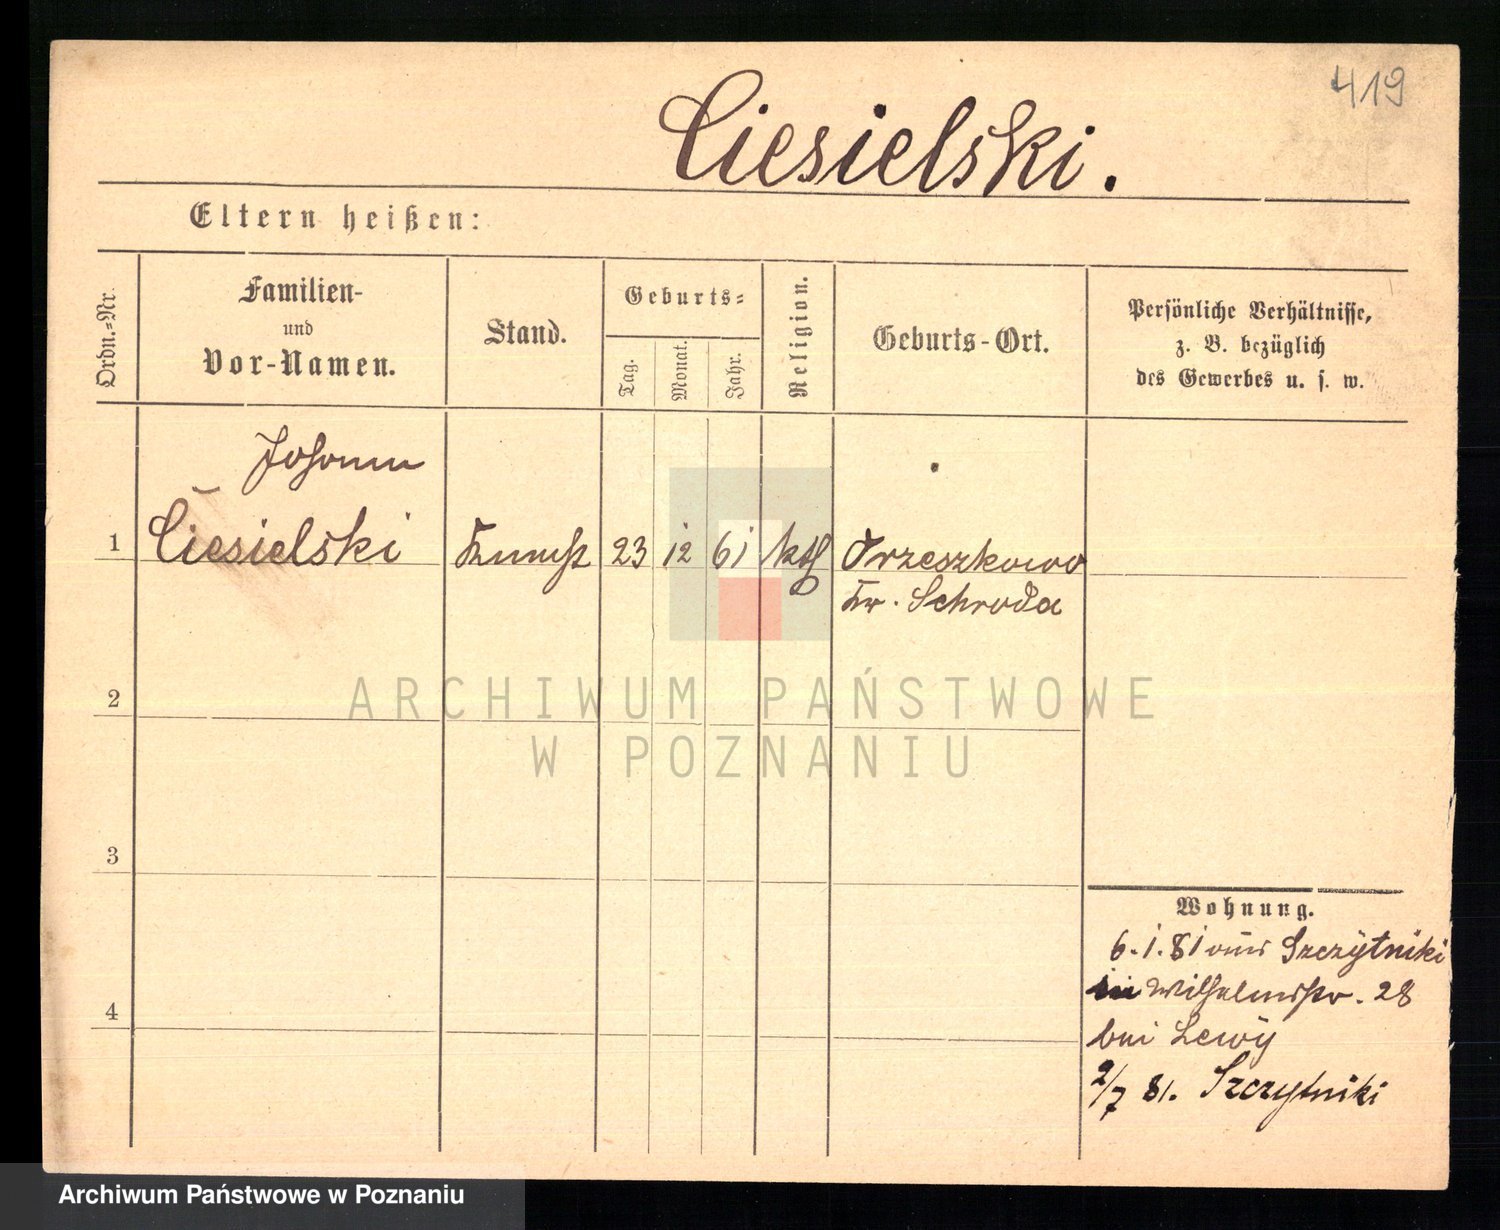 419
Ciesielski.
Eltern heißen:
Ordn.=Nr.
Familien-
und
Vor-Namen.
Stand.
Geburts=
Tag.
Monat.
Jahr.
Religion.
Geburts-Ort.
Persönliche Verhältnisse,
z. B. bezüglich
des Gewerbes u. s. w.
Johann
1 Ciesielski Knecht 23 12 61 kth Orzeszkowo
Kr. Schroda
2
3
4
Wohnung.
6.1.81 aus Szczytniki
in Wilhelmstr. 28
bei Lewy
2/7 81. Szczytniki
ARCHIWUM PAŃSTWOWE
W POZNANIU
Archiwum Państwowe w Poznaniu